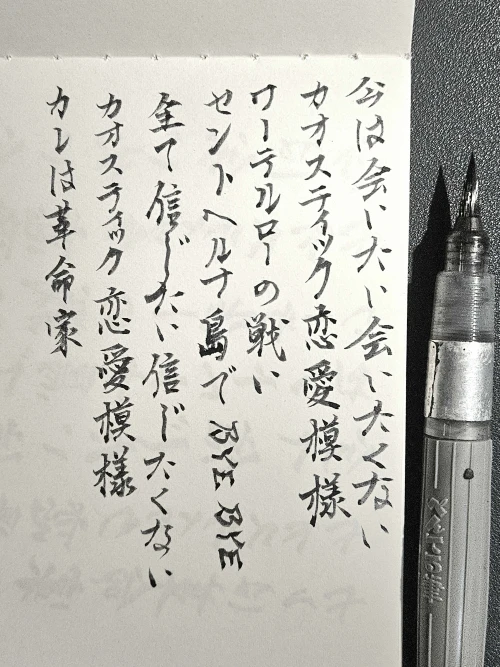 今は会いたい会いたくない
カオスティック恋愛模様
ワーテルローの戦い
セントヘルナ島で BYE BYE
全て信じたい信じたくない
カオスティック恋愛模様
カレは革命家
ぺんてる筆